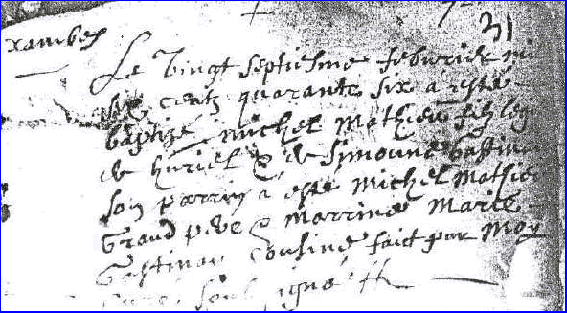 31
xambes
Le vingt septiesme febvrier mi
six centz quarante six a esté
baptizé michel Mathieu filz leg
de huriel & de Simoune Gastinau
son parrin a esté Michel Mathieu
Grand pere & Marrine Marie
Gastinau Cousine faict par Moy
Curé soubsigné